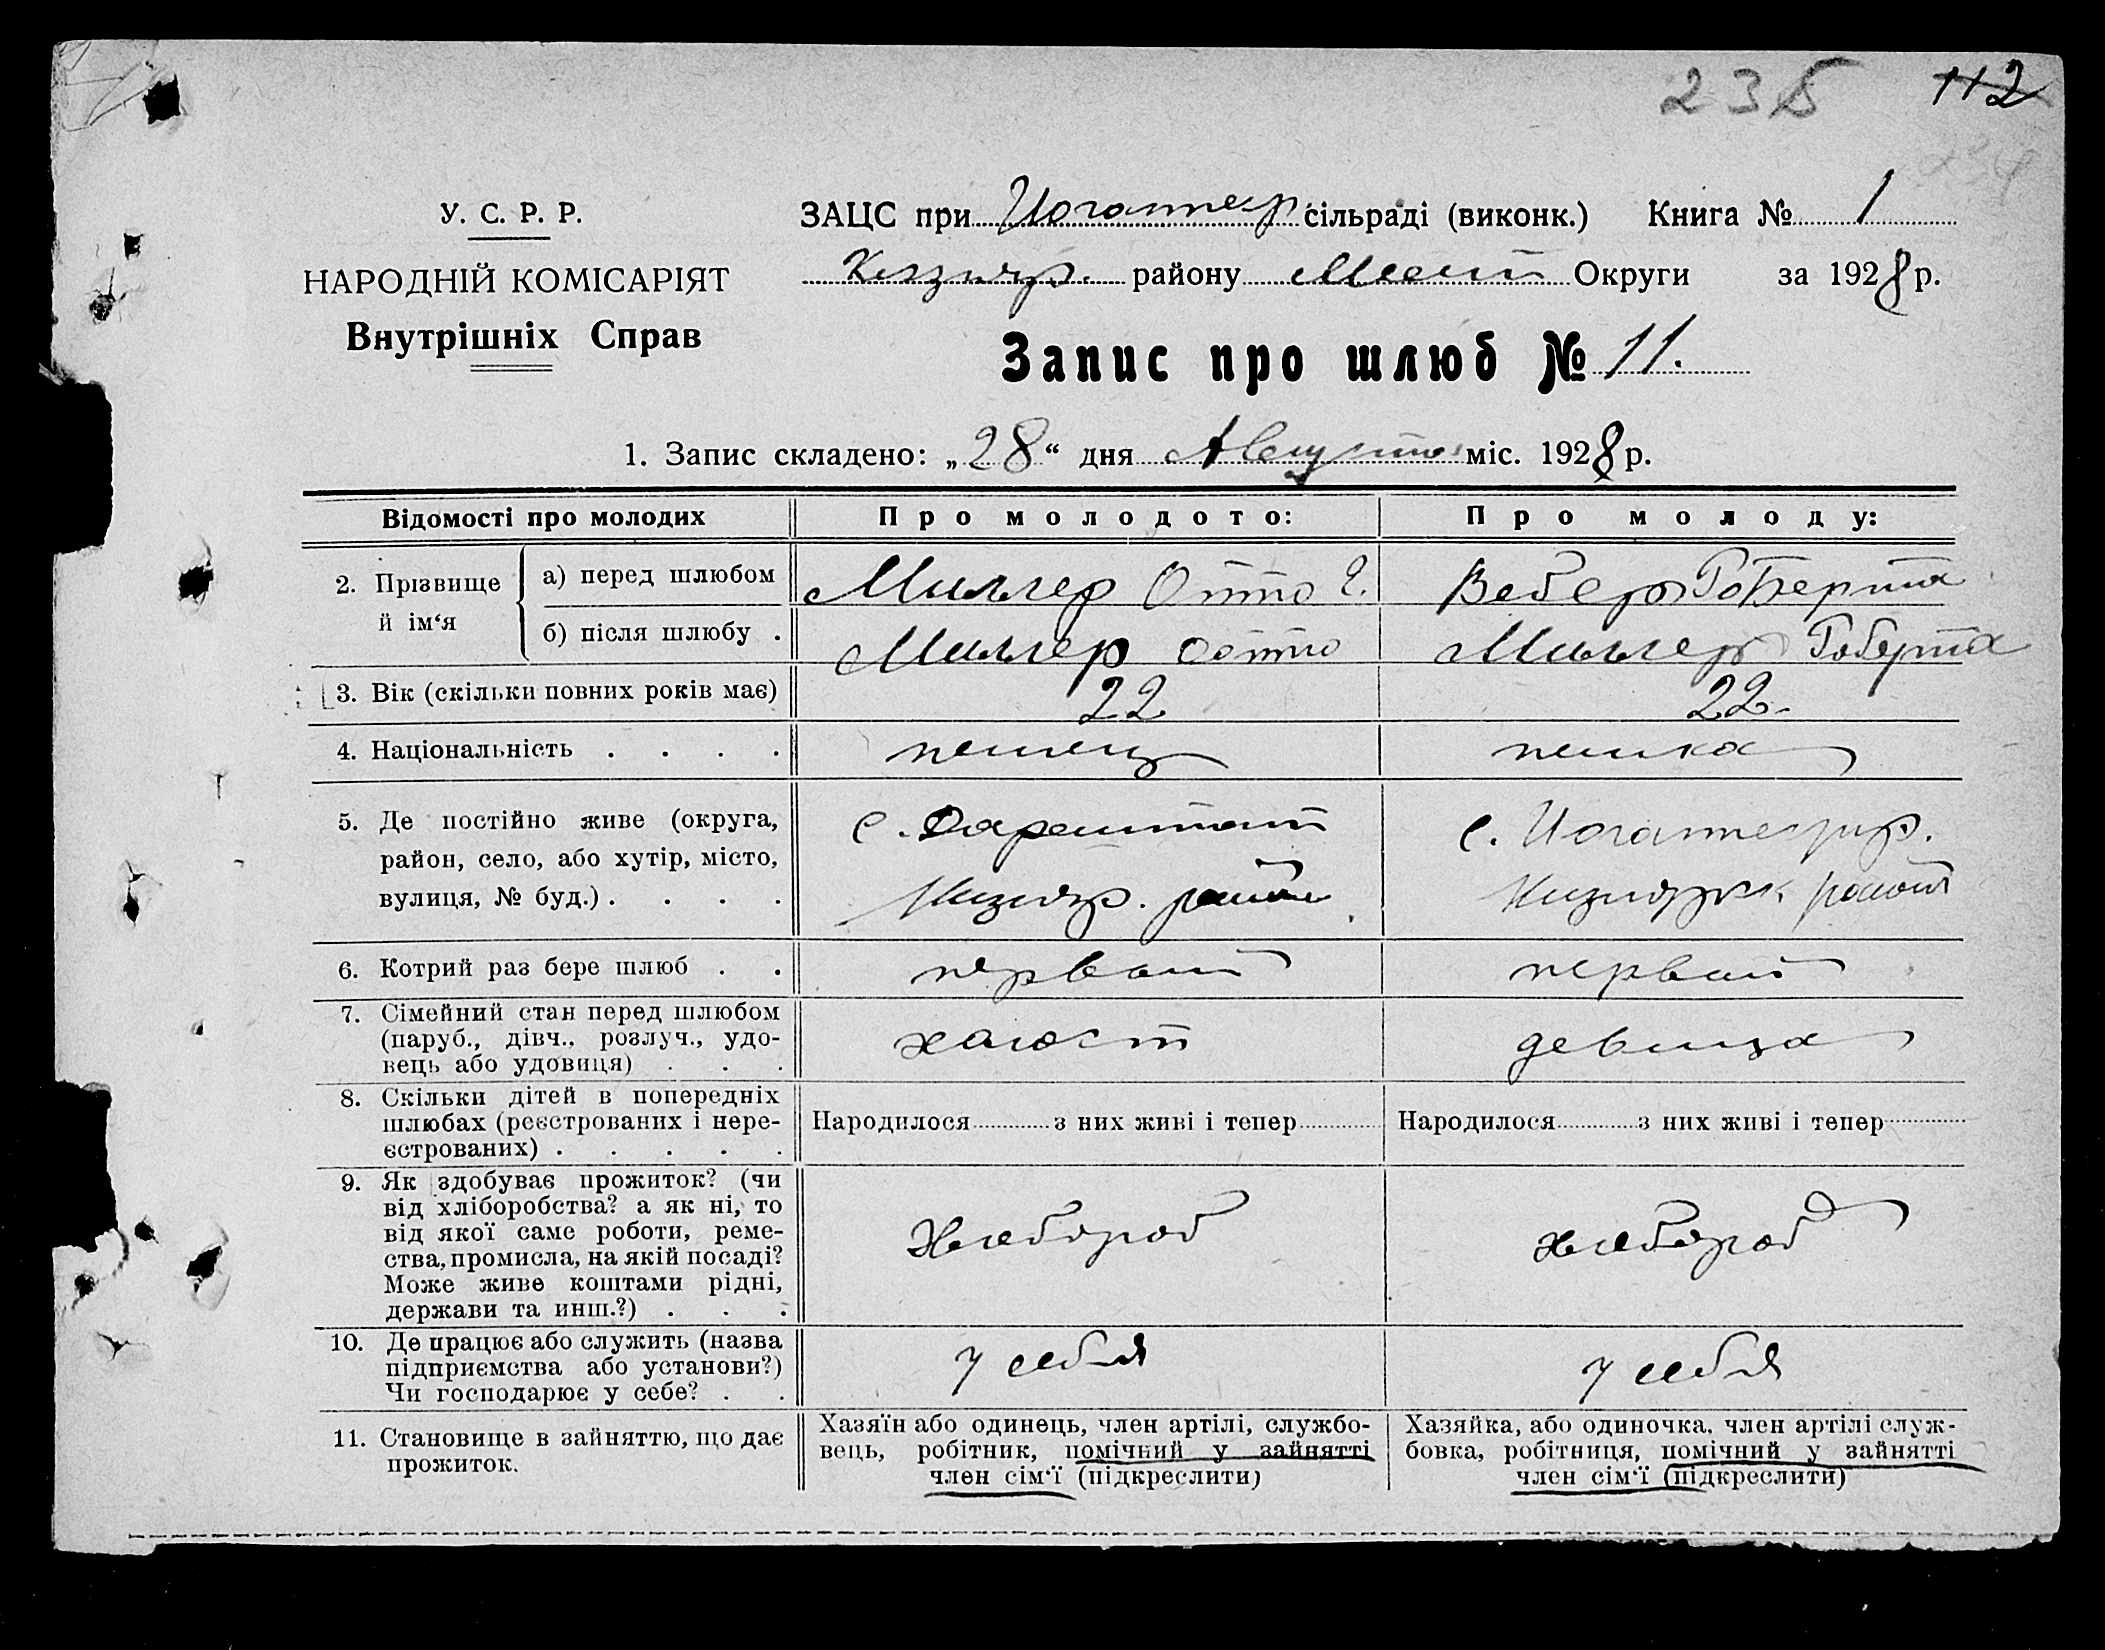 235 112
У. С. Р. Р.
НАРОДНІЙ КОМІСАРІЯТ
Внутрішніх Справ
ЗАЦС при сільраді (виконк.) Книга № 1
району Округи за 1928 р.
Запис про шлюб № 11.
1. Запис складено: „28“ дня Августа міс. 1928 р.
Відомості про молодих
Про молодого:
Про молоду:
2. Прізвище й ім‘я
а) перед шлюбом
Миллер Отто Г.
Вебер Роберта
б) після шлюбу .
Миллер Отто
Миллер Роберта
3. Вік (скільки повних років має)
22
22
4. Національність . . . .
немец
немка
5. Де постійно живе (округа,
район, село, або хутір, місто,
вулиця, № буд.) . . . .
с. Дармштат
район
с.
район
6. Котрий раз бере шлюб . .
первый
первый
7. Сімейний стан перед шлюбом
(паруб., дівч., розлуч., удо-
вець або удовиця) . . .
холост
девица
8. Скільки дітей в попередніх
шлюбах (реєстрованих і нере-
єстрованих) . . . . .
Народилося з них живі і тепер
Народилося з них живі і тепер
9. Як здобуває прожиток? (чи
від хліборобства? а як ні, то
від якої саме роботи, реме-
ства, промисла, на якій посаді?
Може живе коштами рідні,
держави та инш.?) . . .
Хлебороб
хлебороб
10. Де працює або служить (назва
підприємства або установи?)
Чи господарює у себе? . .
у себя
у себя
11. Становище в зайняттю, що дає
прожиток.
Хазяїн або одинець, член артілі, службо-
вець, робітник, помічний у зайнятті
член сім‘ї (підкреслити)
Хазяйка, або одиночка, член артілі служ-
бовка, робітниця, помічний у зайнятті
член сім‘ї (підкреслити)